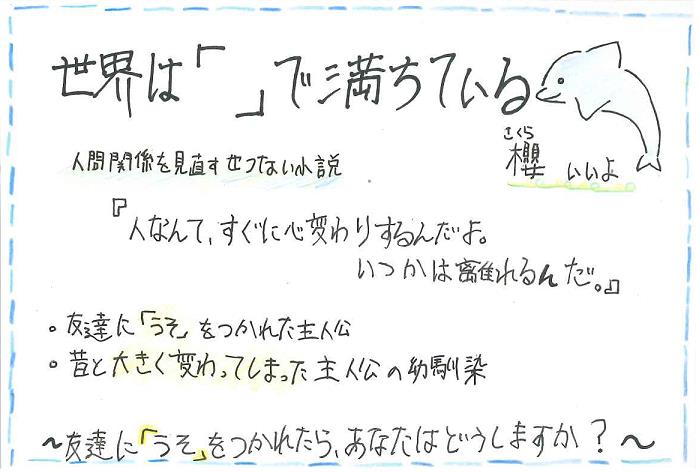 世界は「　」で満ちている
さくら
櫻 いいよ
人間関係を見直すせつない小説
『人なんて、すぐに心変わりするんだよ。
いつかは離れるんだ。』
。友達に「うそ」をつかれた主人公
。昔と大きく変わってしまった主人公の幼馴染
～友達に「うそ」をつかれたら、あなたはどうしますか？～